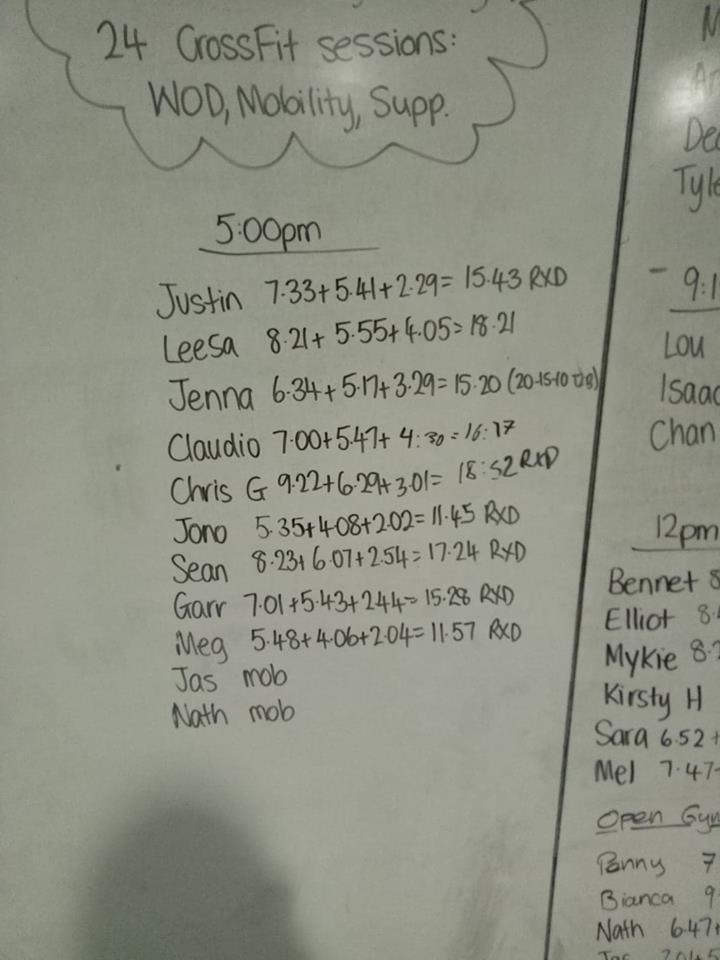 24 CrossFit sessions:
WOD, Mobility, Supp.
5:00pm
Justin 7.33+5.41+2.29= 15.43 RXD
Leesa 8.21+ 5.55+4.05= 18.21
Jenna 6.34+5.17+3.29=15.20 (20-15-10
Claudio 7.00+5.47+ 4:30=16:17
Chris G 9.22+6.29+3.01= 18:52 RXD
Jono 5.35+4.08+2.02=11.45 RXD
Sean 8.23+6.07+2.54=17.24 RXD
Garr 7.01+5.43+2.44=15.28 RXD
Meg 5.48+4.06+2.04=11.57 RXD
Jas mob
Nath mob
Tyle
- 9:1
Lou
Isaac
Chan
12pm
Bennet 8
Elliot 8.
Mykie 8.
Kirsty H
Sara 6.52+
Mel 7.47
Open Gym
Penny 7
Bianca 9
Nath 6.47+